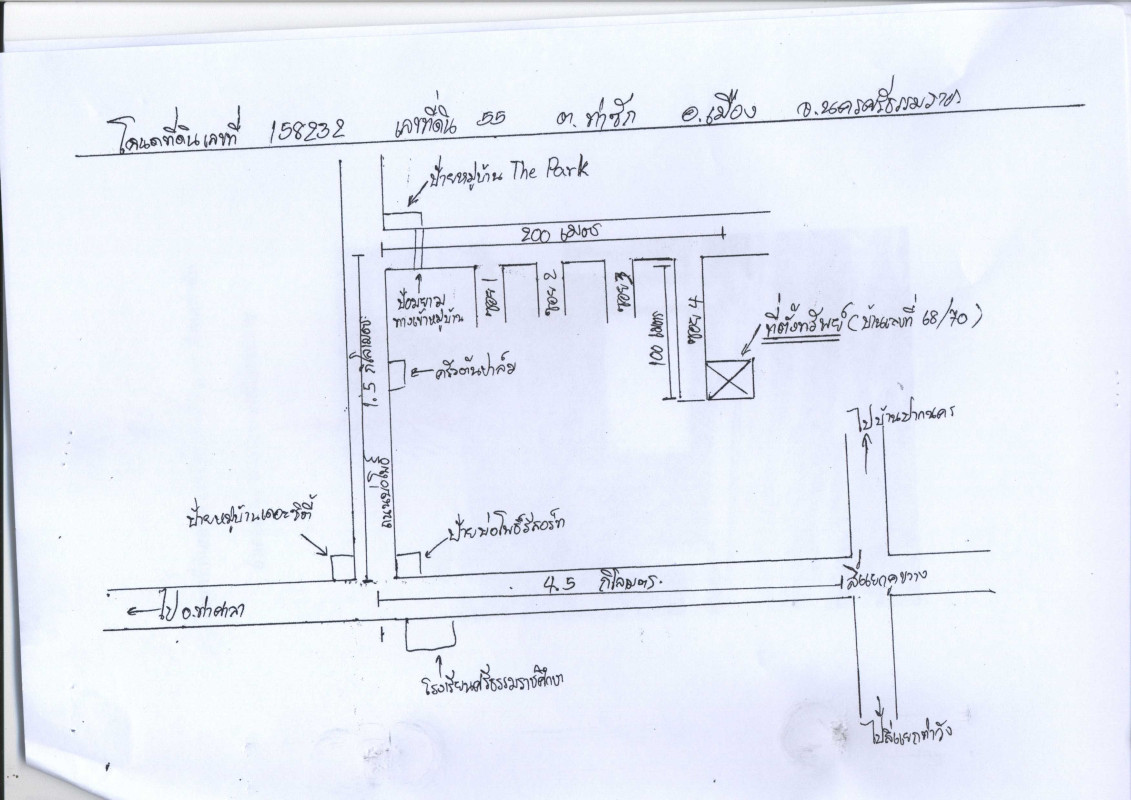 โฉนดที่ดินเลขที่ 158232 เลขที่ดิน 55 ต. ท่าซัก อ.เมือง จ.นครศรีธรรมราช
ป้ายหมู่บ้าน The Park
200 เมตร
ป้อมยาม
ทางเข้าหมู่บ้าน
ซอย 1
ซอย 2
ซอย 3
ซอย 4
100 เมตร
ที่ตั้งทรัพย์ (บ้านเลขที่ 68/70)
1.5 กิโลเมตร
ครัวต้นปาล์ม
ไปบ้านปากนคร
ถนนบ่อโพธิ์
ป้ายหมู่บ้านเดอะซิตี้
ป้ายบ่อโพธิ์รีสอร์ท
4.5 กิโลเมตร
สี่แยกคูขวาง
ไป อ.ท่าศาลา
โรงเรียนศรีธรรมราชศึกษา
ไปสี่แยกท่าวัง